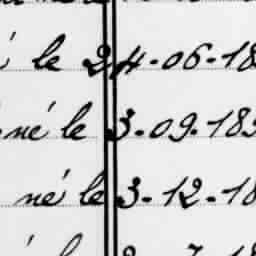 é le 24-06-18
né le 3-09-189
né le 3-12-18